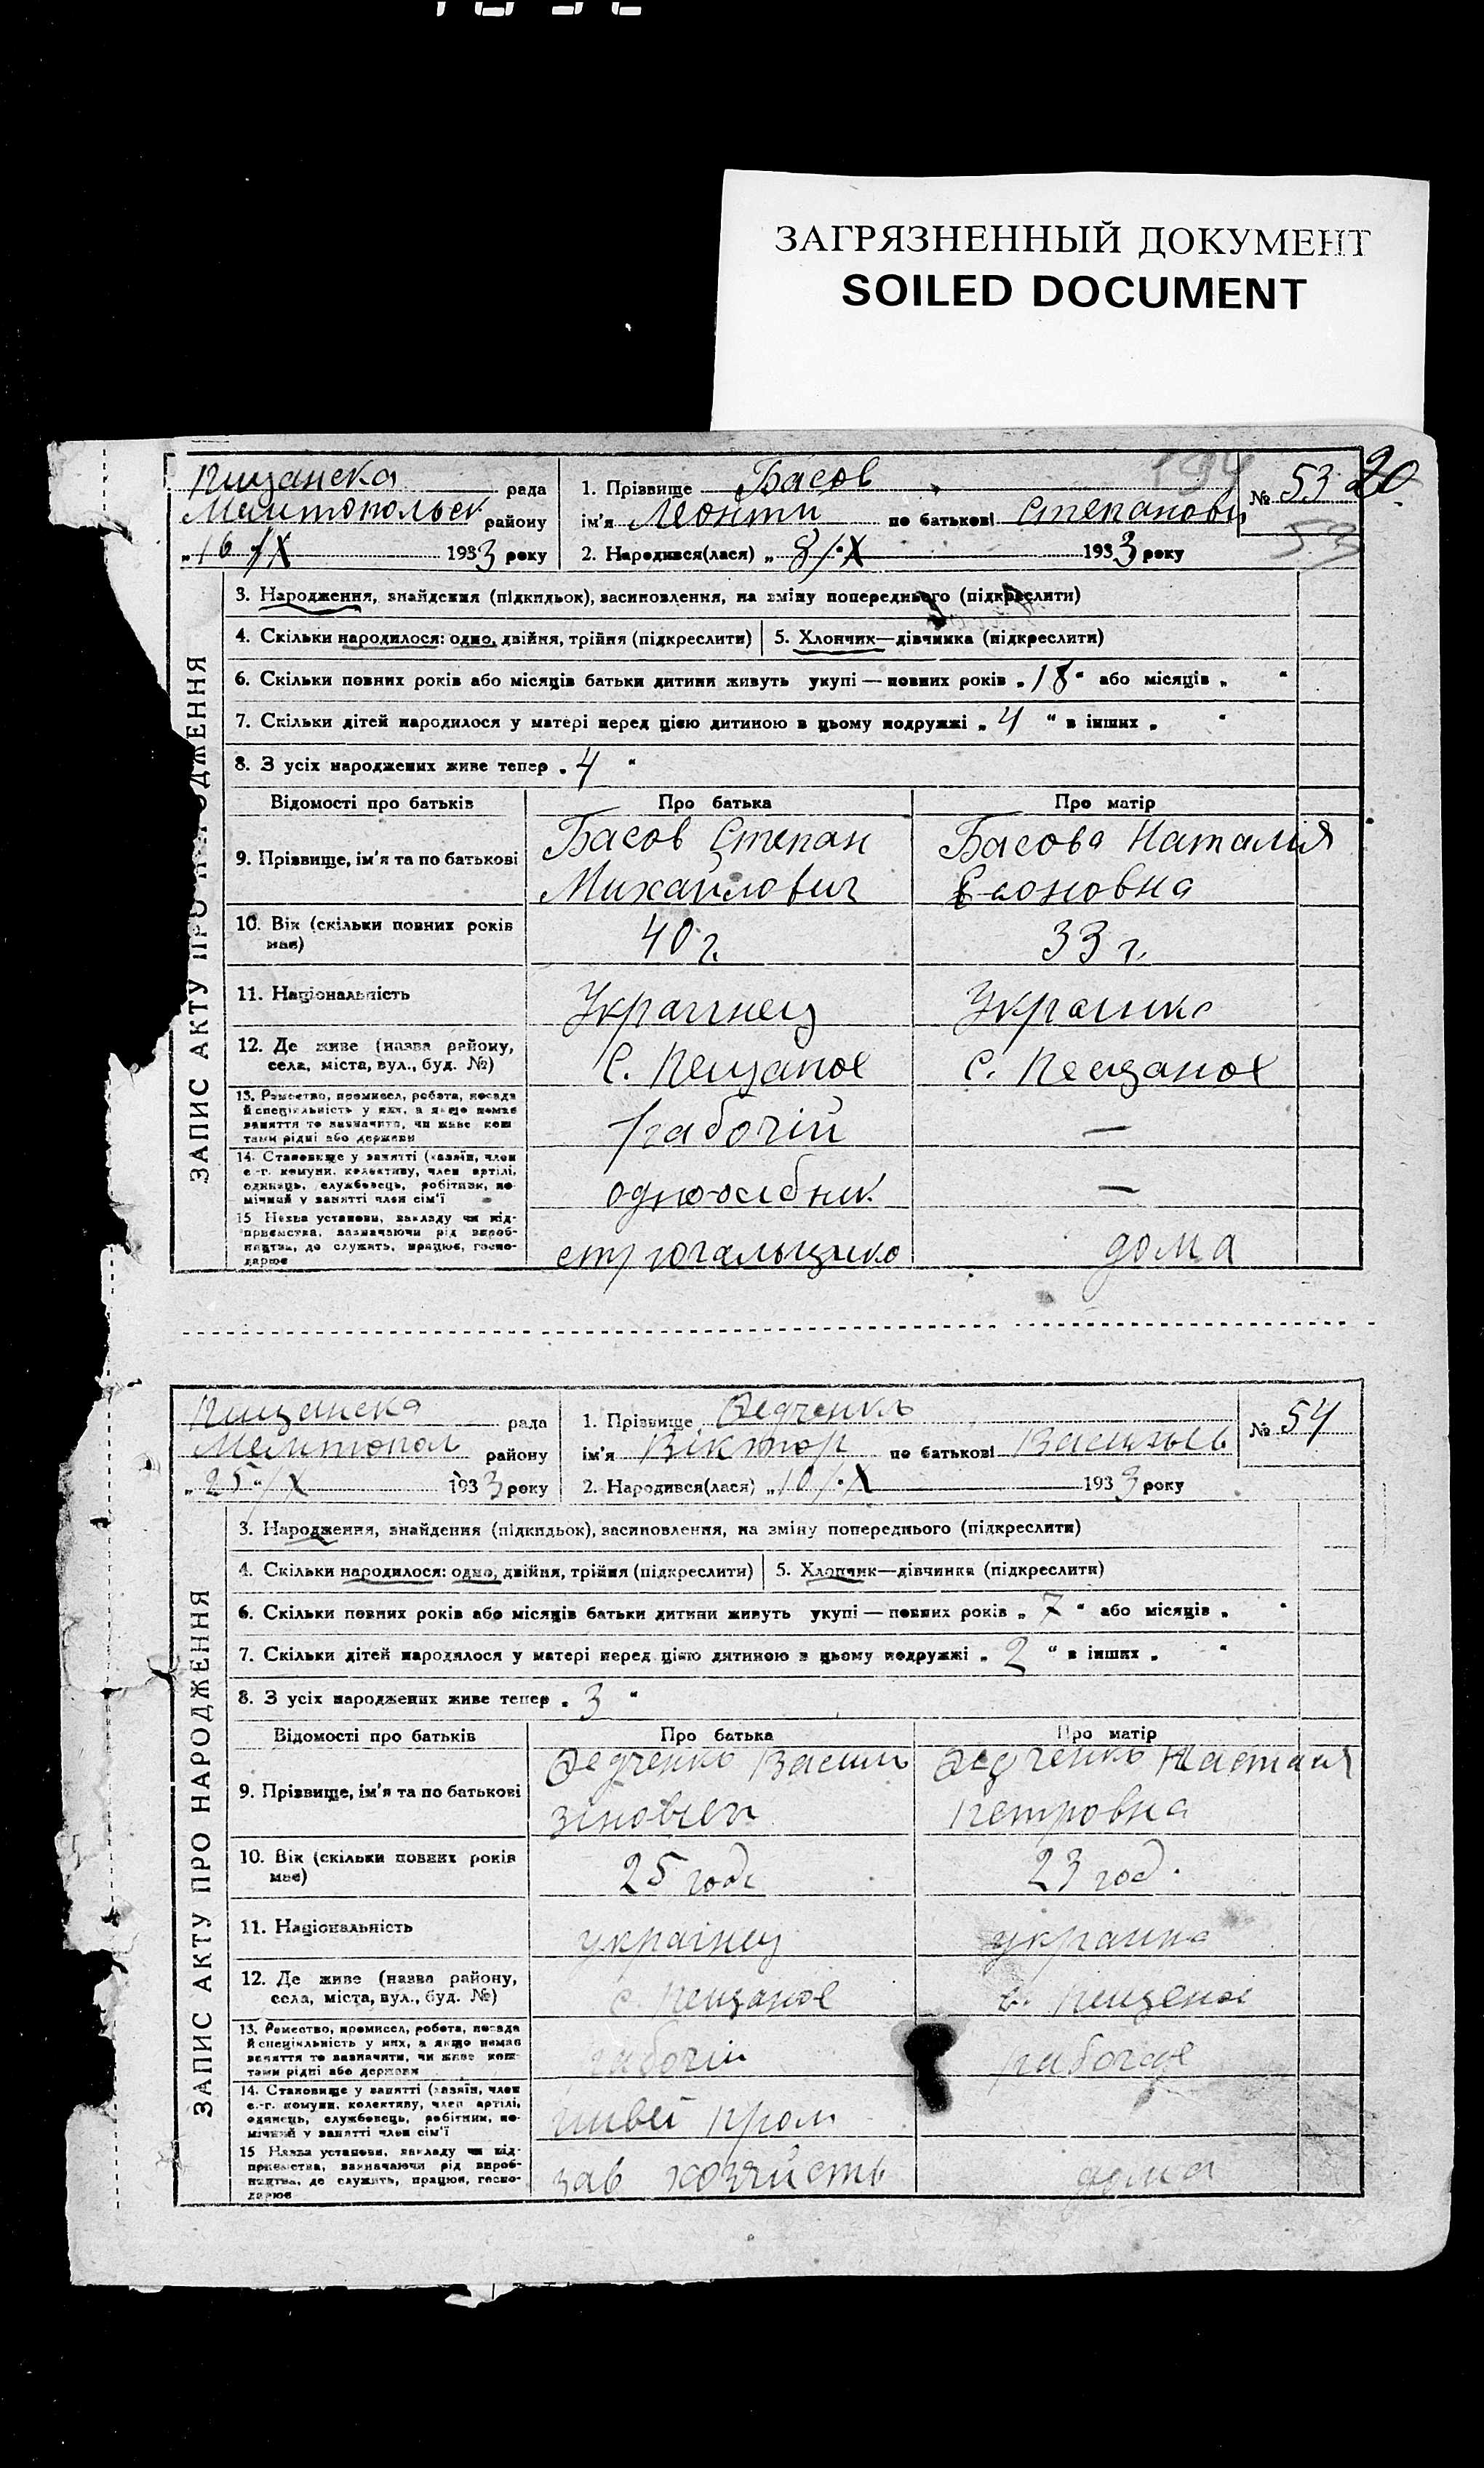 ЗАГРЯЗНЕННЫЙ ДОКУМЕНТ
SOILED DOCUMENT
20
194
Пищанска рада
Мелитопольск району
„16"/X 1933 року
1. Прізвище Басов
ім'я Леонти по батькові Степанови
2. Народився(лася) „8/·X 1933 року
№ 53
53
ЗАПИС АКТУ ПРО НАРОДЖЕННЯ
3. Народження, знайдення (підкидьок), засиновлення, на зміну попереднього (підкреслити)
4. Скільки народилося: одно, двійня, трійня (підкреслити) 5. Хлопчик—дівчинка (підкреслити)
6. Скільки повних років або місяців батьки дитини живуть укупі — повних років „18" або місяців „ "
7. Скільки дітей народилося у матері перед цією дитиною в цьому подружжі „4" в інших „ "
8. З усіх народжених живе тепер „4"
Відомості про батьків Про батька Про матір
9. Прізвище, ім'я та по батькові
Басов Степан
Михайлович
Басова Наталия
10. Вік (скільки повних років має)
40 г. 33 г.
11. Національність
Украінец Украинка
12. Де живе (назва району,
села, міста, вул., буд. №)
С. Пещаное С. Пещаное
13. Ремество, промисел, робота, посада
й спеціяльність у них, а якщо немає
заняття то зазначити, чи живе кош
тами рідні або держави
рабочій —
14. Становище у занятті (хазяїн, член
с.-г. комуни, колективу, член артілі,
одинець, службовець, робітник, по-
мічний у занятті член сім'ї
одноосібник —
15 Назва установи, закладу чи під-
приємства, зазначаючи рід вироб-
ництва, де служить, працює, госпо-
дарює
дома
Пищанска рада
Мелитопол району
„25"/X 1933 року
1. Прізвище Федченко
ім'я Віктор по батькові Васильев
2. Народився(лася) „10/·X 1933 року
№ 54
ЗАПИС АКТУ ПРО НАРОДЖЕННЯ
3. Народження, знайдення (підкидьок), засиновлення, на зміну попереднього (підкреслити)
4. Скільки народилося: одно, двійня, трійня (підкреслити) 5. Хлопчик—дівчинка (підкреслити)
6. Скільки повних років або місяців батьки дитини живуть укупі — повних років „7" або місяців „ "
7. Скільки дітей народилося у матері перед цією дитиною в цьому подружжі „2" в інших „ "
8. З усіх народжених живе тепер „3"
Відомості про батьків Про батька Про матір
9. Прізвище, ім'я та по батькові
Федченко Василь
Федченко
Петровна
10. Вік (скільки повних років має)
25 годс 23 год.
11. Національність
украінец украинка
12. Де живе (назва району,
села, міста, вул., буд. №)
с. Пещаное с. Пещаное
13. Ремество, промисел, робота, посада
й спеціяльність у них, а якщо немає
заняття то зазначити, чи живе кош-
тами рідні або держави
рабочій рабочае
14. Становище у занятті (хазяїн, член
с.-г. комуни, колективу, член артілі,
одинець, службовець, робітник, по-
мічний у занятті член сім'ї
швей пром
15 Назва установи, закладу чи під-
приємства, зазначаючи рід вироб-
ництва, де служить, працює, госпо-
дарює
зав хозяйств дома